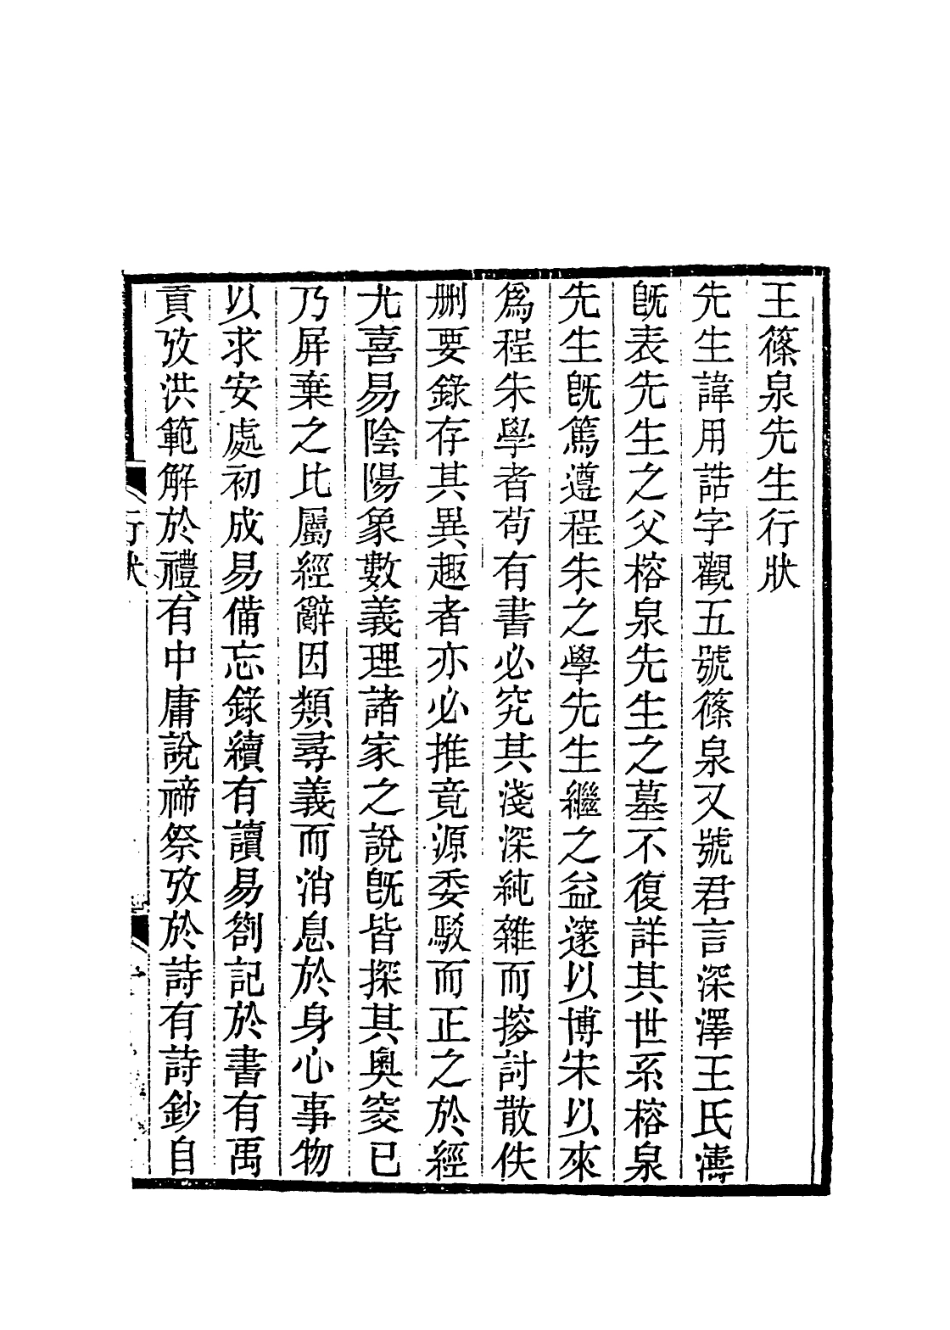 王篠泉先生行狀
先生諱用誥字觀五號篠泉又號君言深澤王氏濤
旣表先生之父榕泉先生之墓不復詳其世系榕泉
先生旣篤遵程朱之學先生繼之益邃以博宋以來
爲程朱學者茍有書必究其淺深純雜而搜討散佚
删要錄存其異趣者亦必推竟源委駁而正之於經
尤喜易陰陽象數義理諸家之說旣皆探其奧窔已
乃屏棄之比屬經辭因類尋義而消息於身心事物
以求安處初成易備忘錄續有讀易劄記於書有禹
貢攷洪範解於禮有中庸說禘祭攷於詩有詩鈔自
行狀